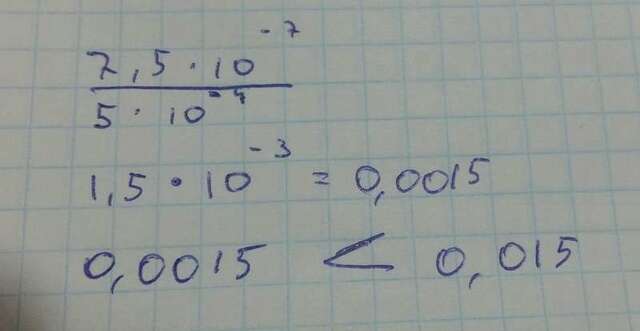 7,5 · 10⁻⁷
5 · 10⁻⁴
1,5 · 10⁻³ = 0,0015
0,0015 < 0,015